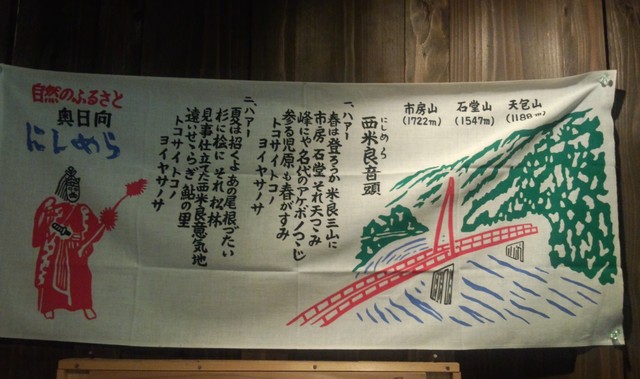 自然のふるさと
奥日向
にしめら
市房山
(1722m)
石堂山
(1547m)
天包山
(1188m)
にしめら
西米良音頭
一、ハアー
春は登ろうか 米良三山に
市房 石堂 それ天つつみ
峰にや名代のアケボノつつじ
参る児原も春がすみ
トコサイトコノ
ヨイヤサノサ
二、ハアー
夏は招くよ あの尾根づたい
杉に桧に それ 松林
見事仕立てた西米良意気地
遠いせゝらぎ 鮎の里
トコサイトコノ
ヨイヤサノサ